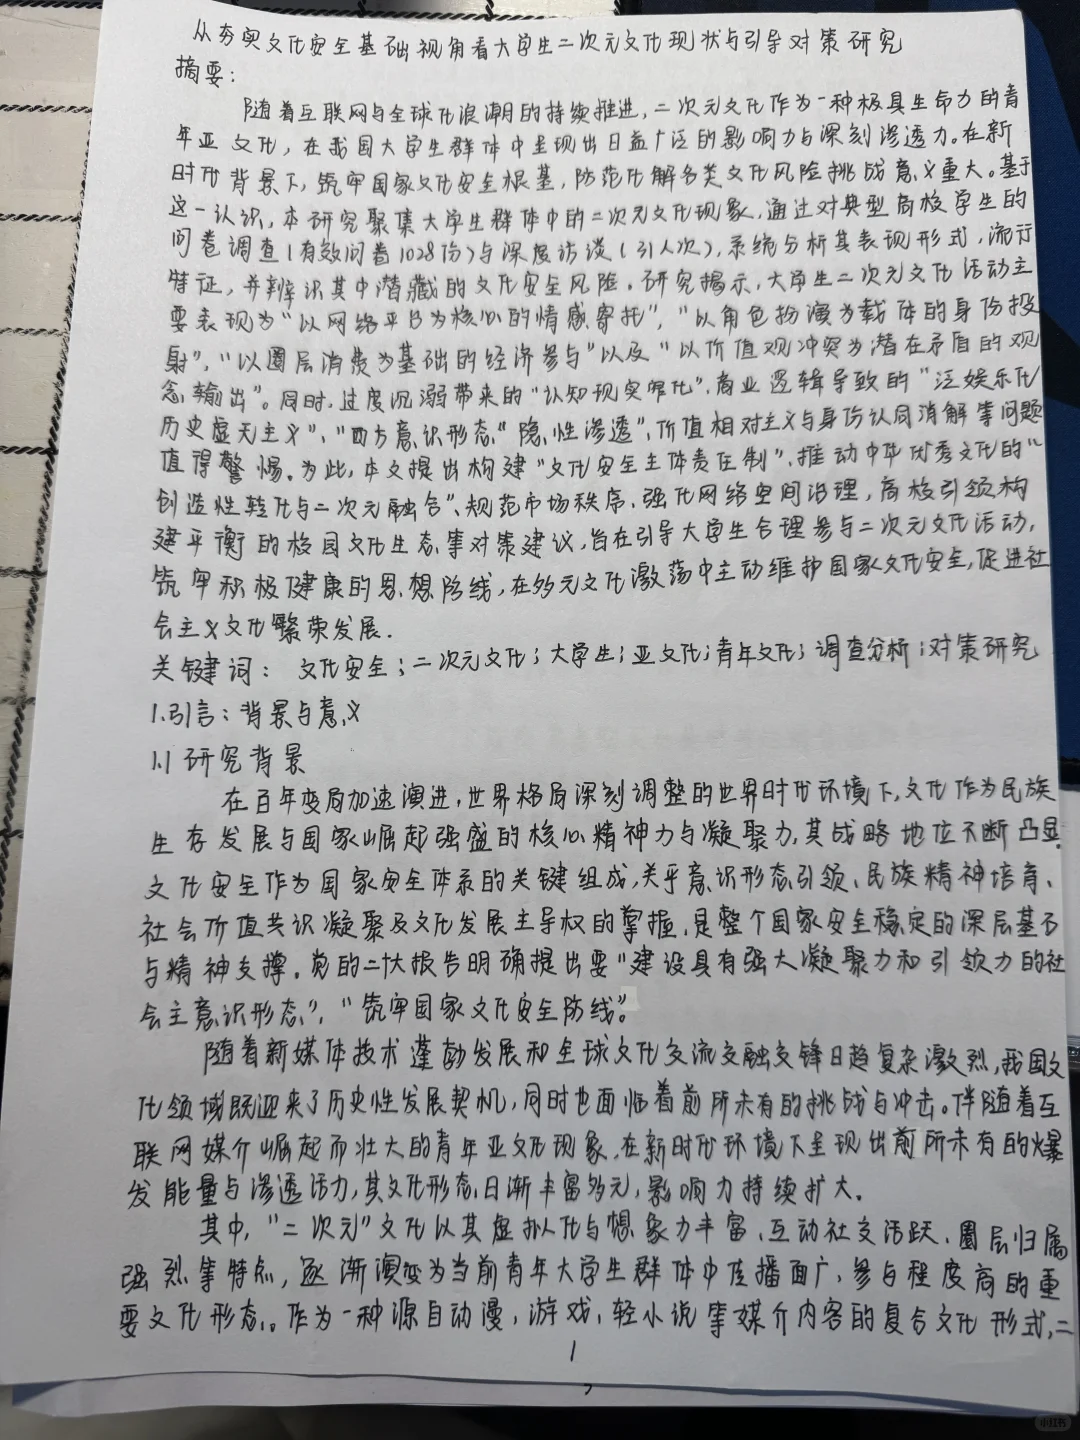 从夯实文化安全基础视角看大学生二次元文化现状与引导对策研究
摘要:
随着互联网与全球化浪潮的持续推进,二次元文化作为一种极具生命力的青
年亚文化,在我国大学生群体中呈现出日益广泛的影响力与深刻渗透力。在新
时代背景下,筑牢国家文化安全根基,防范化解各类文化风险挑战意义重大。基于
这一认识,本研究聚集大学生群体中的二次元文化现象,通过对典型高校学生的
问卷调查(有效问卷1028份)与深度访谈(31人次),系统分析其表现形式,流行
特征,并辨识其中潜藏的文化安全风险。研究揭示,大学生二次元文化活动主
要表现为“以网络平台为核心的情感寄托”,“以角色扮演为载体的身份投
射”,“以圈层消费为基础的经济参与”以及“以价值观冲突为潜在矛盾的观
念输出”。同时,过度沉溺带来的“认知现实窄化”,商业逻辑导致的“泛娱乐化
历史虚无主义”,“西方意识形态“隐性渗透”,价值相对主义与身份认同消解等问题
值得警惕。为此,本文提出构建“文化安全主体责任制”,推动中华优秀文化的“
创造性转化与二次元融合”、规范市场秩序、强化网络空间治理,高校引领构
建平衡的校园文化生态等对策建议,旨在引导大学生合理参与二次元文化活动,
筑牢积极健康的思想防线,在多元文化激荡中主动维护国家文化安全,促进社
会主义文化繁荣发展.
关键词: 文化安全;二次元文化;大学生;亚文化;青年文化;调查分析;对策研究
1.引言:背景与意义
1.1 研究背景
在百年变局加速演进,世界格局深刻调整的世界时代环境下,文化作为民族
生存发展与国家崛起强盛的核心精神力与凝聚力,其战略地位不断凸显.
文化安全作为国家安全体系的关键组成,关乎意识形态引领、民族精神培育、
社会价值共识凝聚及文化发展主导权的掌握,是整个国家安全稳定的深层基石
与精神支撑。党的二十大报告明确提出要“建设具有强大凝聚力和引领力的社
会主意识形态”,“筑牢国家文化安全防线”。
随着新媒体技术蓬勃发展和全球文化交流交融交锋日趋复杂激烈,我国文
化领域既迎来了历史性发展契机,同时也面临着前所未有的挑战与冲击。伴随着互
联网媒介崛起而壮大的青年亚文化现象,在新时代环境下呈现出前所未有的爆
发能量与渗透活力,其文化形态日渐丰富多元,影响力持续扩大。
其中,“二次元”文化以其虚拟化与想象力丰富、互动社交活跃、圈层归属
强烈等特点,逐渐演变为当前青年大学生群体中传播面广,参与程度高的重
要文化形态。作为一种源自动漫,游戏,轻小说等媒介内容的复合文化形式,二
1
小红书